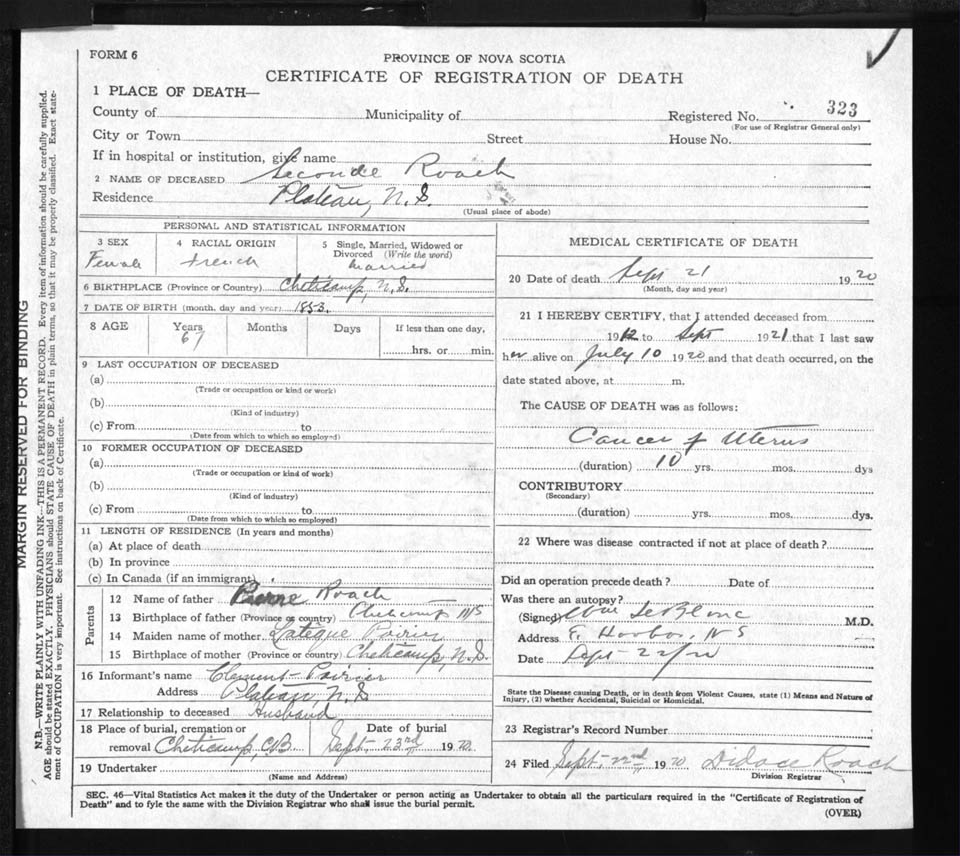 FORM 6
PROVINCE OF NOVA SCOTIA
CERTIFICATE OF REGISTRATION OF DEATH
1 PLACE OF DEATH—
County of Municipality of Registered No. 323
(For use of Registrar General only)
City or Town Street House No.
If in hospital or institution, give name
2 NAME OF DECEASED Seconde Roach
Residence Plateau, N.S.
(Usual place of abode)
PERSONAL AND STATISTICAL INFORMATION
3 SEX 4 RACIAL ORIGIN 5 Single, Married, Widowed or
Divorced (Write the word)
Female French Married
6 BIRTHPLACE (Province or Country) Cheticamp, N.S.
7 DATE OF BIRTH (month, day and year) 1853.
8 AGE Years Months Days If less than one day,
67
hrs. or min.
9 LAST OCCUPATION OF DECEASED
(a)
(Trade or occupation or kind or work)
(b)
(Kind of industry)
(c) From to
(Date from which to which so employed)
10 FORMER OCCUPATION OF DECEASED
(a)
(Trade or occupation or kind of work)
(b)
(Kind of industry)
(c) From to
(Date from which to which so employed)
11 LENGTH OF RESIDENCE (In years and months)
(a) At place of death
(b) In province
(c) In Canada (if an immigrant)
Parents
12 Name of father Roach
13 Birthplace of father (Province or country) Cheticamp NS
14 Maiden name of mother Poirier
15 Birthplace of mother (Province or country) Cheticamp, N.S.
16 Informant's name Clement Poirier
Address Plateau, N.S
17 Relationship to deceased Husband
18 Place of burial, cremation or Date of burial
removal Cheticamp, CB Sept. 23rd 1920.
19 Undertaker
(Name and Address)
MEDICAL CERTIFICATE OF DEATH
20 Date of death Sept 21 1920
(Month, day and year)
21 I HEREBY CERTIFY, that I attended deceased from
1912 to Sept 1921 that I last saw
her alive on July 10 1920 and that death occurred, on the
date stated above, at m.
The CAUSE OF DEATH was as follows:
Cancer of Uterus
(duration) 10 yrs. mos. dys
CONTRIBUTORY
(Secondary)
(duration) yrs. mos. dys.
22 Where was disease contracted if not at place of death?
Did an operation precede death? Date of
Was there an autopsy?
(Signed) LeBlanc M.D.
Address E. Harbor, NS
Date Sept-22/20
State the Disease causing Death, or in death from Violent Causes, state (1) Means and Nature of
Injury, (2) whether Accidental, Suicidal or Homicidal.
23 Registrar's Record Number
24 Filed Sept. 22nd, 1920 Didace Roach
Division Registrar
SEC. 46—Vital Statistics Act makes it the duty of the Undertaker or person acting as Undertaker to obtain all the particulars required in the "Certificate of Registration of
Death" and to fyle the same with the Division Registrar who shall issue the burial permit.
(OVER)
MARGIN RESERVED FOR BINDING
N.B.—WRITE PLAINLY WITH UNFADING INK—THIS IS A PERMANENT RECORD. Every item of information should be carefully supplied.
AGE should be stated EXACTLY. PHYSICIANS should STATE CAUSE OF DEATH in plain terms, so that it may be properly classified. Exact state-
ment of OCCUPATION is very important. See instructions on back of Certificate.